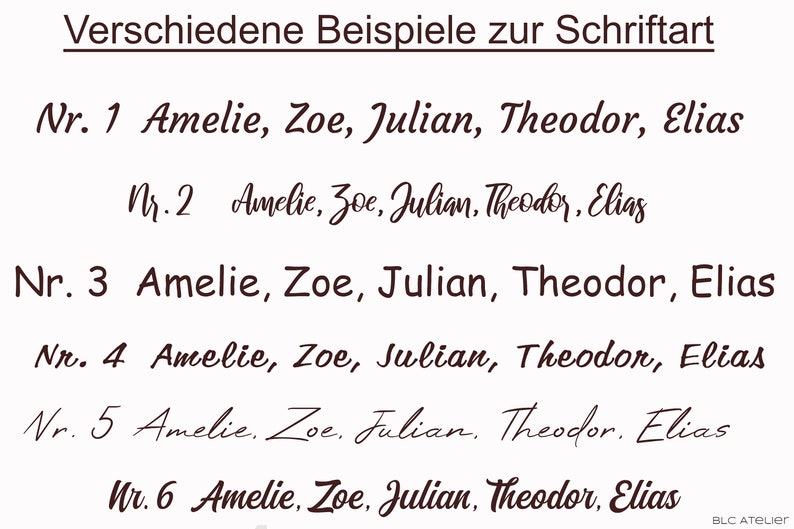 Verschiedene Beispiele zur Schriftart
Nr. 1 Amelie, Zoe, Julian, Theodor, Elias
Nr. 2 Amelie, Zoe, Julian, Theodor, Elias
Nr. 3 Amelie, Zoe, Julian, Theodor, Elias
Nr. 4 Amelie, Zoe, Julian, Theodor, Elias
Nr. 5 Amelie, Zoe, Julian, Theodor, Elias
Nr. 6 Amelie, Zoe, Julian, Theodor, Elias
BLC Atelier